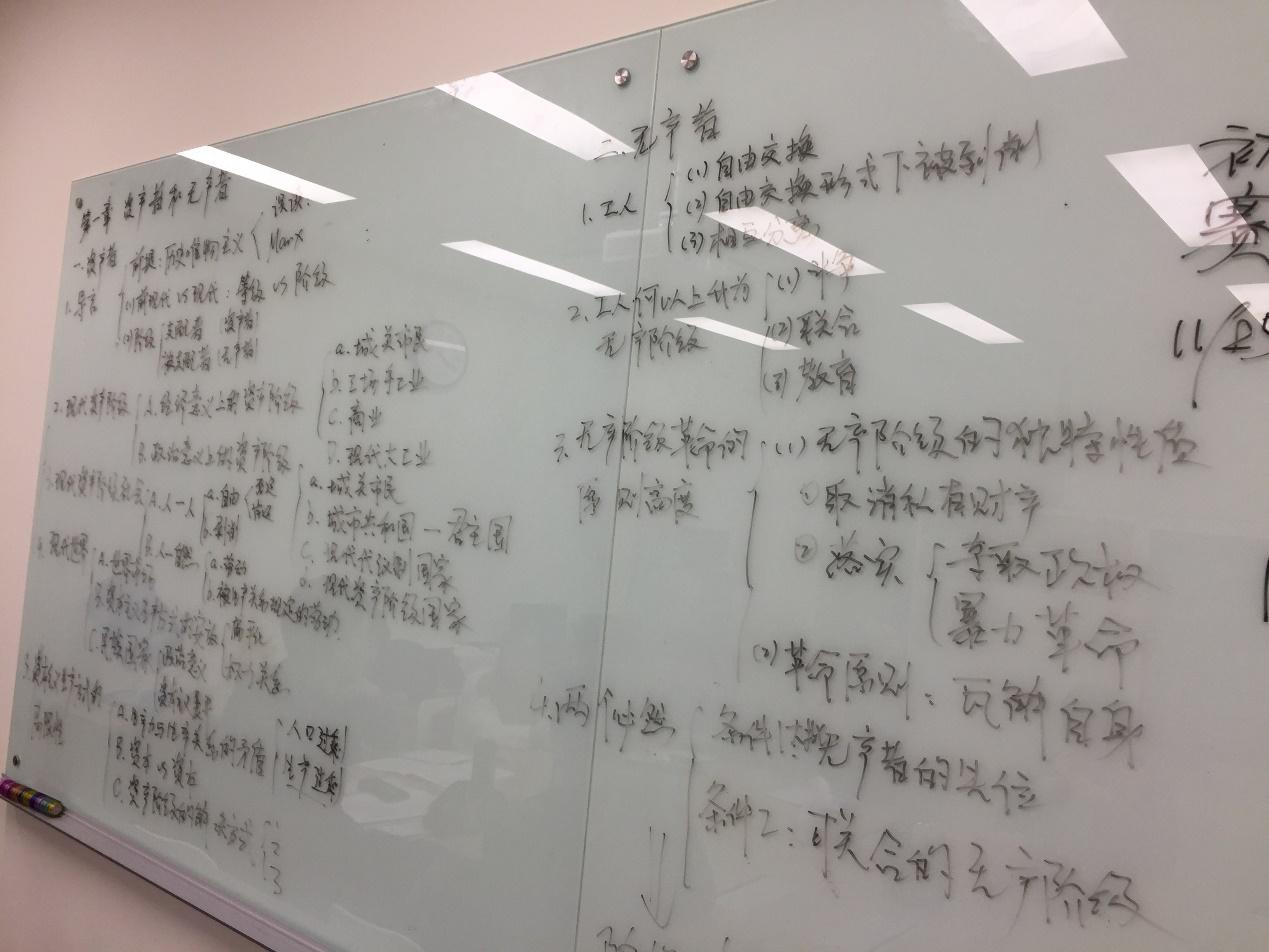 第一章 资产者和无产者
一、资产者
1.导言
前提:历史唯物主义
误读:
Marx
(1)前现代 vs 现代:等级 vs 阶级
(2)阶级
支配者(资产者)
被支配者(无产者)
2.现代资产阶级
A.经济意义上的资产阶级
a.城关市民
b.工场手工业
C.商业
D.现代大工业
B.政治意义上的资产阶级
a.城关市民
b.城市共和国—君主国
C.现代代议制国家
d.现代资产阶级国家
3.现代资产阶级
A.人—人
a.自由
b.剥削
B.人—自然
a.劳动
b.被生产关系规定的劳动
4.现代世界
A.世界市场
B.资本主义生产方式的实施
商平化
C.民族国家
政治意义
5.资本主义生产方式的
局限性
a.生产力与生产关系的矛盾
人口过剩
生产过剩
B.资本 vs 资本
C.资产阶级的
1
2
3
二、无产者
1.工人
(1)自由交换
(2)自由交换形式下被剥削
(3)相互分离
2.工人何以上升为
无产阶级
(1)斗争
(2)联合
(3)教育
三、无产阶级革命的
原则高度
(1)无产阶级的独特性质
①取消私有财产
②落实
夺取政权
暴力革命
(2)革命原则:瓦解自身
两个必然
条件1:无产者的
条件2:联合的无产阶级